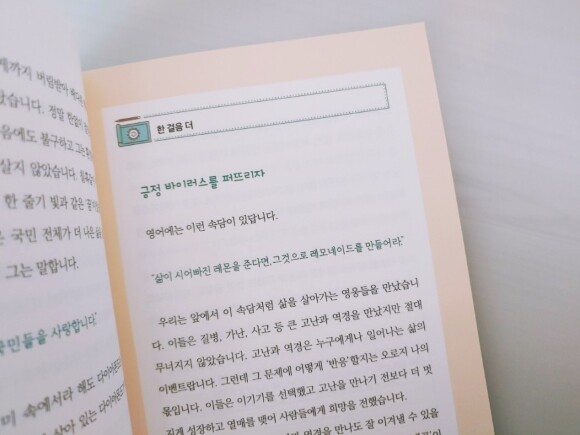 제까지 버림받아
았습니다. 정말
음에도 불구하고 그는
살지 않았습니다.
한 줄기 빛과 같은
은 국민 전체가 더 나은
그는 말합니다.
국민들을 사랑합니다."
미 속에서라 해도 다이아몬드
살아 있는 다이아몬드
한 걸음 더
긍정 바이러스를 퍼뜨리자
영어에는 이런 속담이 있답니다.
"삶이 시어빠진 레몬을 준다면, 그것으로 레모네이드를 만들어라."
우리는 앞에서 이 속담처럼 삶을 살아가는 영웅들을 만났습니
다. 이들은 질병, 가난, 사고 등 큰 고난과 역경을 만났지만 절대
무너지지 않았습니다. 고난과 역경은 누구에게나 일어나는 삶의
이벤트랍니다. 그런데 그 문제에 어떻게 '반응'할지는 오로지 나의
몫입니다. 이들은 이기기를 선택했고 고난을 만나기 전보다 더 멋
지게 성장하고 열매를 맺어 사람들에게 희망을 전했습니다.
역경을 만나도 잘 이겨낼 수 있을